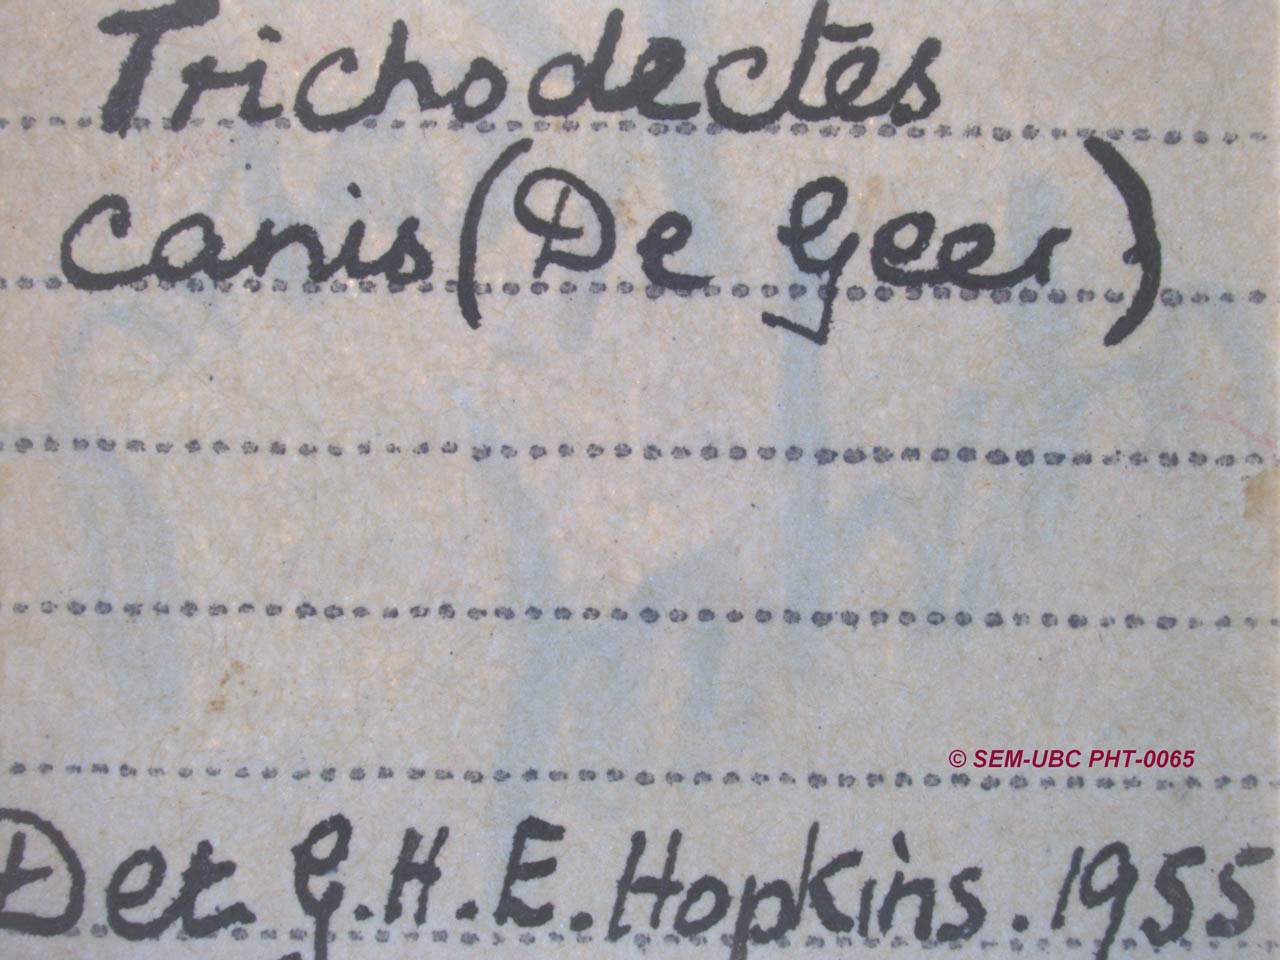 Trichodectes
canis (De Geer)
© SEM-UBC PHT-0065
Det. G.H.E. Hopkins. 1955